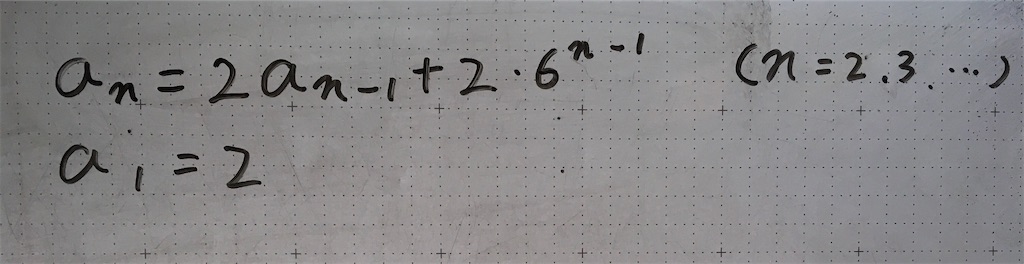 aₙ = 2aₙ₋₁ + 2・6ⁿ⁻¹ (n = 2.3. …)
a₁ = 2